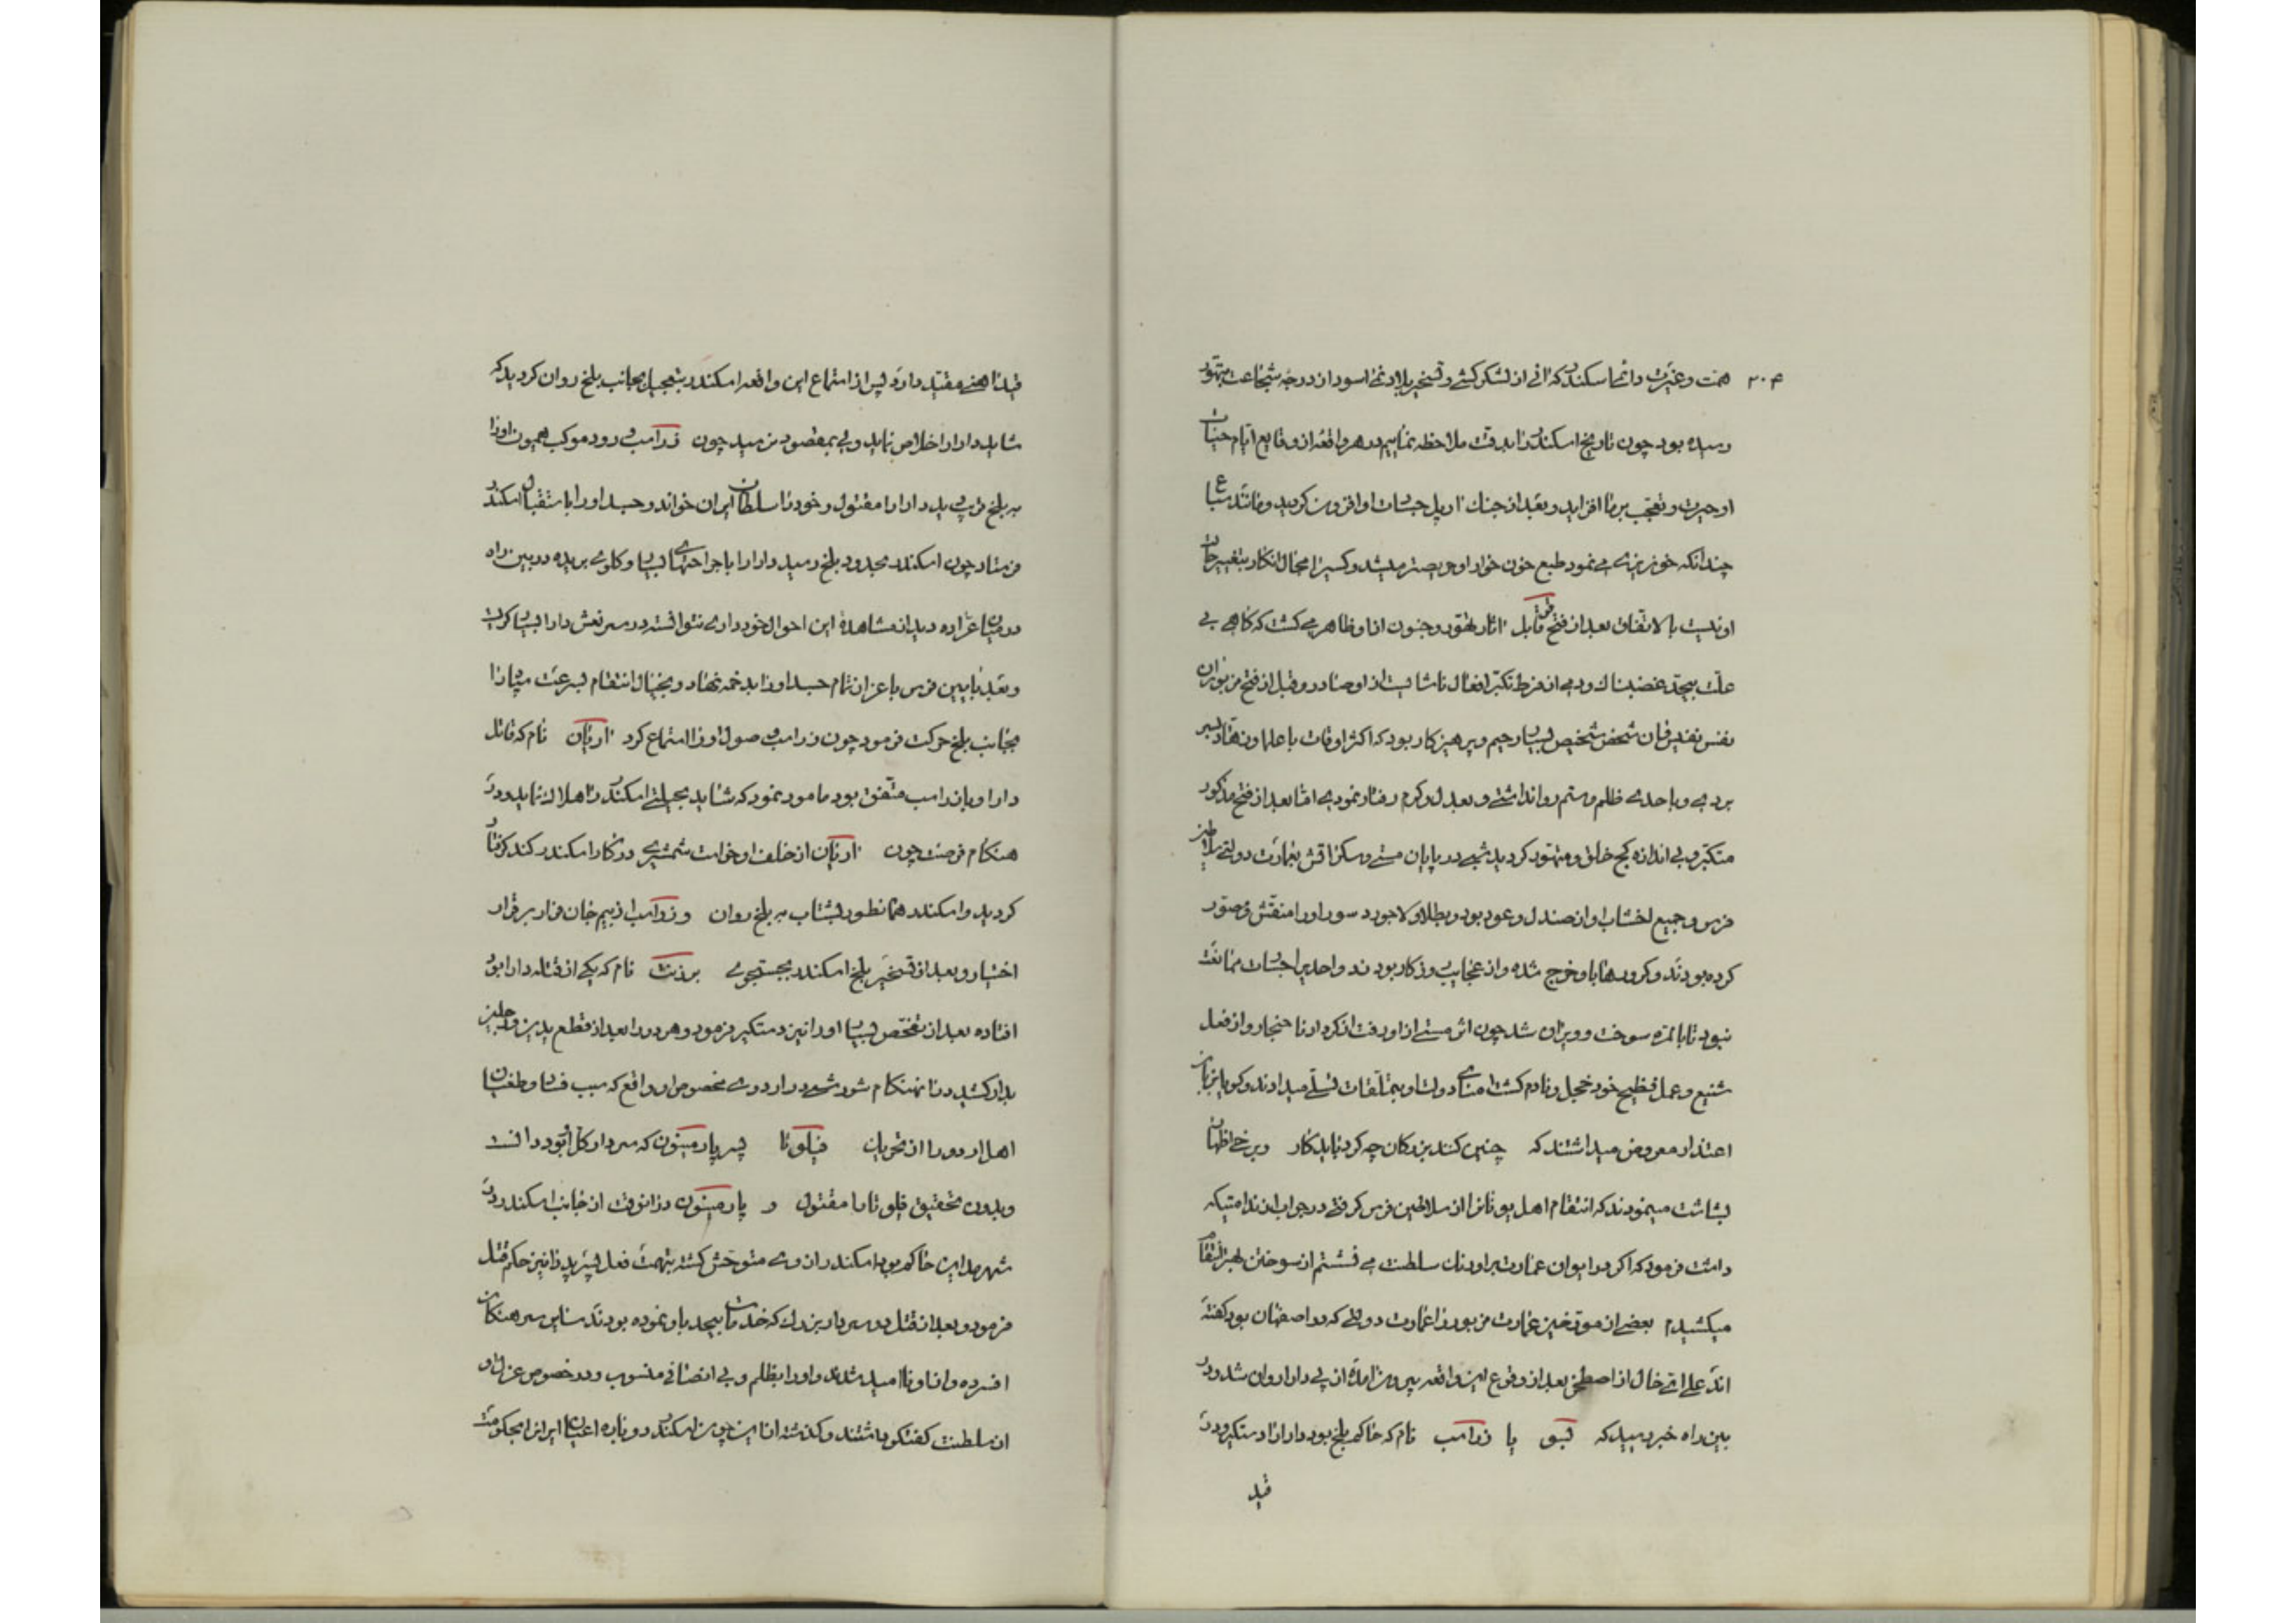 ۳۰۴
همت و غیرت دائما سکندر که انی از لشکر کشی و تسخیر بلاد نمی اسود از درجه شجاعت بتهور
رسیده بود چون تاریخ اسکندر را بدقت ملاحظه نمائیم در هر واقعه از وقایع ایام حیات
او حیرت و تعجب بر ما افزاید و بعد از جنک اربل جسارت او افزون کردید و مانند سباع
چندانکه خونریزی می نمود طبع خون خوار او حریصتر میشد و کسیرا مجال انکار بتغییر حال
او نیست بالاتفاق بعد از فتح فوق قابل اثار تهور و جنون از او ظاهر می کشت که کاهی بی
علت بیحد غضبناک و دمی از فرط تکبر افعال ناشایست از او صادر و قبل از فتح مزبور ان
نفس نفیس ان شخص شخیص بسیار رحیم و پرهیزکار بود که اکثر اوقات با علما و زهاد بسر
بردی و باحدی ظلم و ستم روا نداشتی و بعدل و کرم رفتار نمودی اما بعد از فتح مذکور
متکبر و بی اندازه کج خلق و متهور کردید شبی در پایان مستی و سکر اتش بعمارت دولتی سلاطین
فرس و جمیع اخشاب او از صندل و عود بود و بطلا و لاجورد سور او را منقش و مصور
کرده بودند و کرورها باو خرج شده و از عجایب روزکار بودند و احدیرا جسارت ممانعت
نبود تا بالمره سوخت و ویران شد چون اثر مستی از او رفت از کردار ناهنجار و از فعل
شنیع و عمل فظیح خود خجل و نادم کشت امنای دولت او بتملقات تسلی میدادند و کویا بزبان
اعتذار معروض میداشتند که چنین کنند بزرکان چه کرد باید کار و برخی اظهار
بشاشت مینمودند که انتقام اهل یونانرا از سلاطین فرس کرفتی در جواب از ندامتیکه
داشت فرمود که اکر در ایوان عمارت بر اورنک سلطنت می نشستم از سوختن بهتر انتقام
میکشیدم بعضی از مورخین عمارت مزبور را عمارت دولتی که در اصفهان بود کفته
اند علی ای حال از اصطخر بعد از وقوع این واقعه بیرون امده از پی دارا روان شد و در
بین راه خبر رسید که بسو یا زرامب نام که حاکم بلخ بود دارا را دستکیر و در
قید
قید اهنی مقید دارد پس از استماع این واقعه اسکندر بتعجیل بجانب بلخ روان کردید که
شاید دارا را خلاص نماید ولی بمقصود نرسید چون زرامب ورود موکب همیون او را
به بلخ قریب دید دارا را مقتول و خود را سلطان ایران خواند و جسد او را باستقبال اسکندر
فرستاد چون اسکندر بحدود بلخ رسید دارا را با جراحتهای بسیار و کلوی بریده در بین راه
در میان عراده دید از مشاهده این احوال خود داری نتوانسته در سر نعش دارا بسیار کریست
و بعد بایین فرس باعزاز تمام جسد او را بدخمه نهاد و بخیال انتقام بسرعت
بجانب بلخ حرکت فرمود چون زرامب وصول او را استماع کرد اریان نام که قاتل
دارا و با زرامب متفق بود مامور نمود که شاید بحیلتی اسکندر را هلاک نماید و در
هنکام فرصت چون اریان از خلف او خواست شمشیری در کار اسکندر کند کرفتار
کردید و اسکندر همانطور بشتاب به بلخ روان و زرامب از بیم جان فرار بر قرار
اختیار و بعد از تسخیر بلخ اسکندر بجستجوی برزنت نام که یکی از قتله دارا بود
افتاده بعد از تفحص بسیار او را نیز دستکیر فرمود و هر دو را بعد از قطع یدین و رجلین
بدار کشید در انهنکام شورشی در اردوی مخصوص او واقع که سبب فساد و طغیان
اهل اردو را از تحریک فیلوتا پسر پارمینون که سردار کل او بود دانست
و بدون تحقیق فیلوتا را مقتول و پارمینون در انوقت از جانب اسکندر در
شهر مداین حاکم بود اسکندر از وی متوحش کشته بتهمت فعل پسر پدر را نیز حکم قتل
فرمود و بعد از قتل دو سردار بزرک که خدمات بیحد باو نموده بودند سایر سرهنکان
افسرده و از او ناامید شدند و او را بظلم و بی انصافی منسوب و در خصوص عزل او
از سلطنت کفتکو داشتند و کذشته از این چون اسکندر دوباره اعیان ایرانرا بحکومت